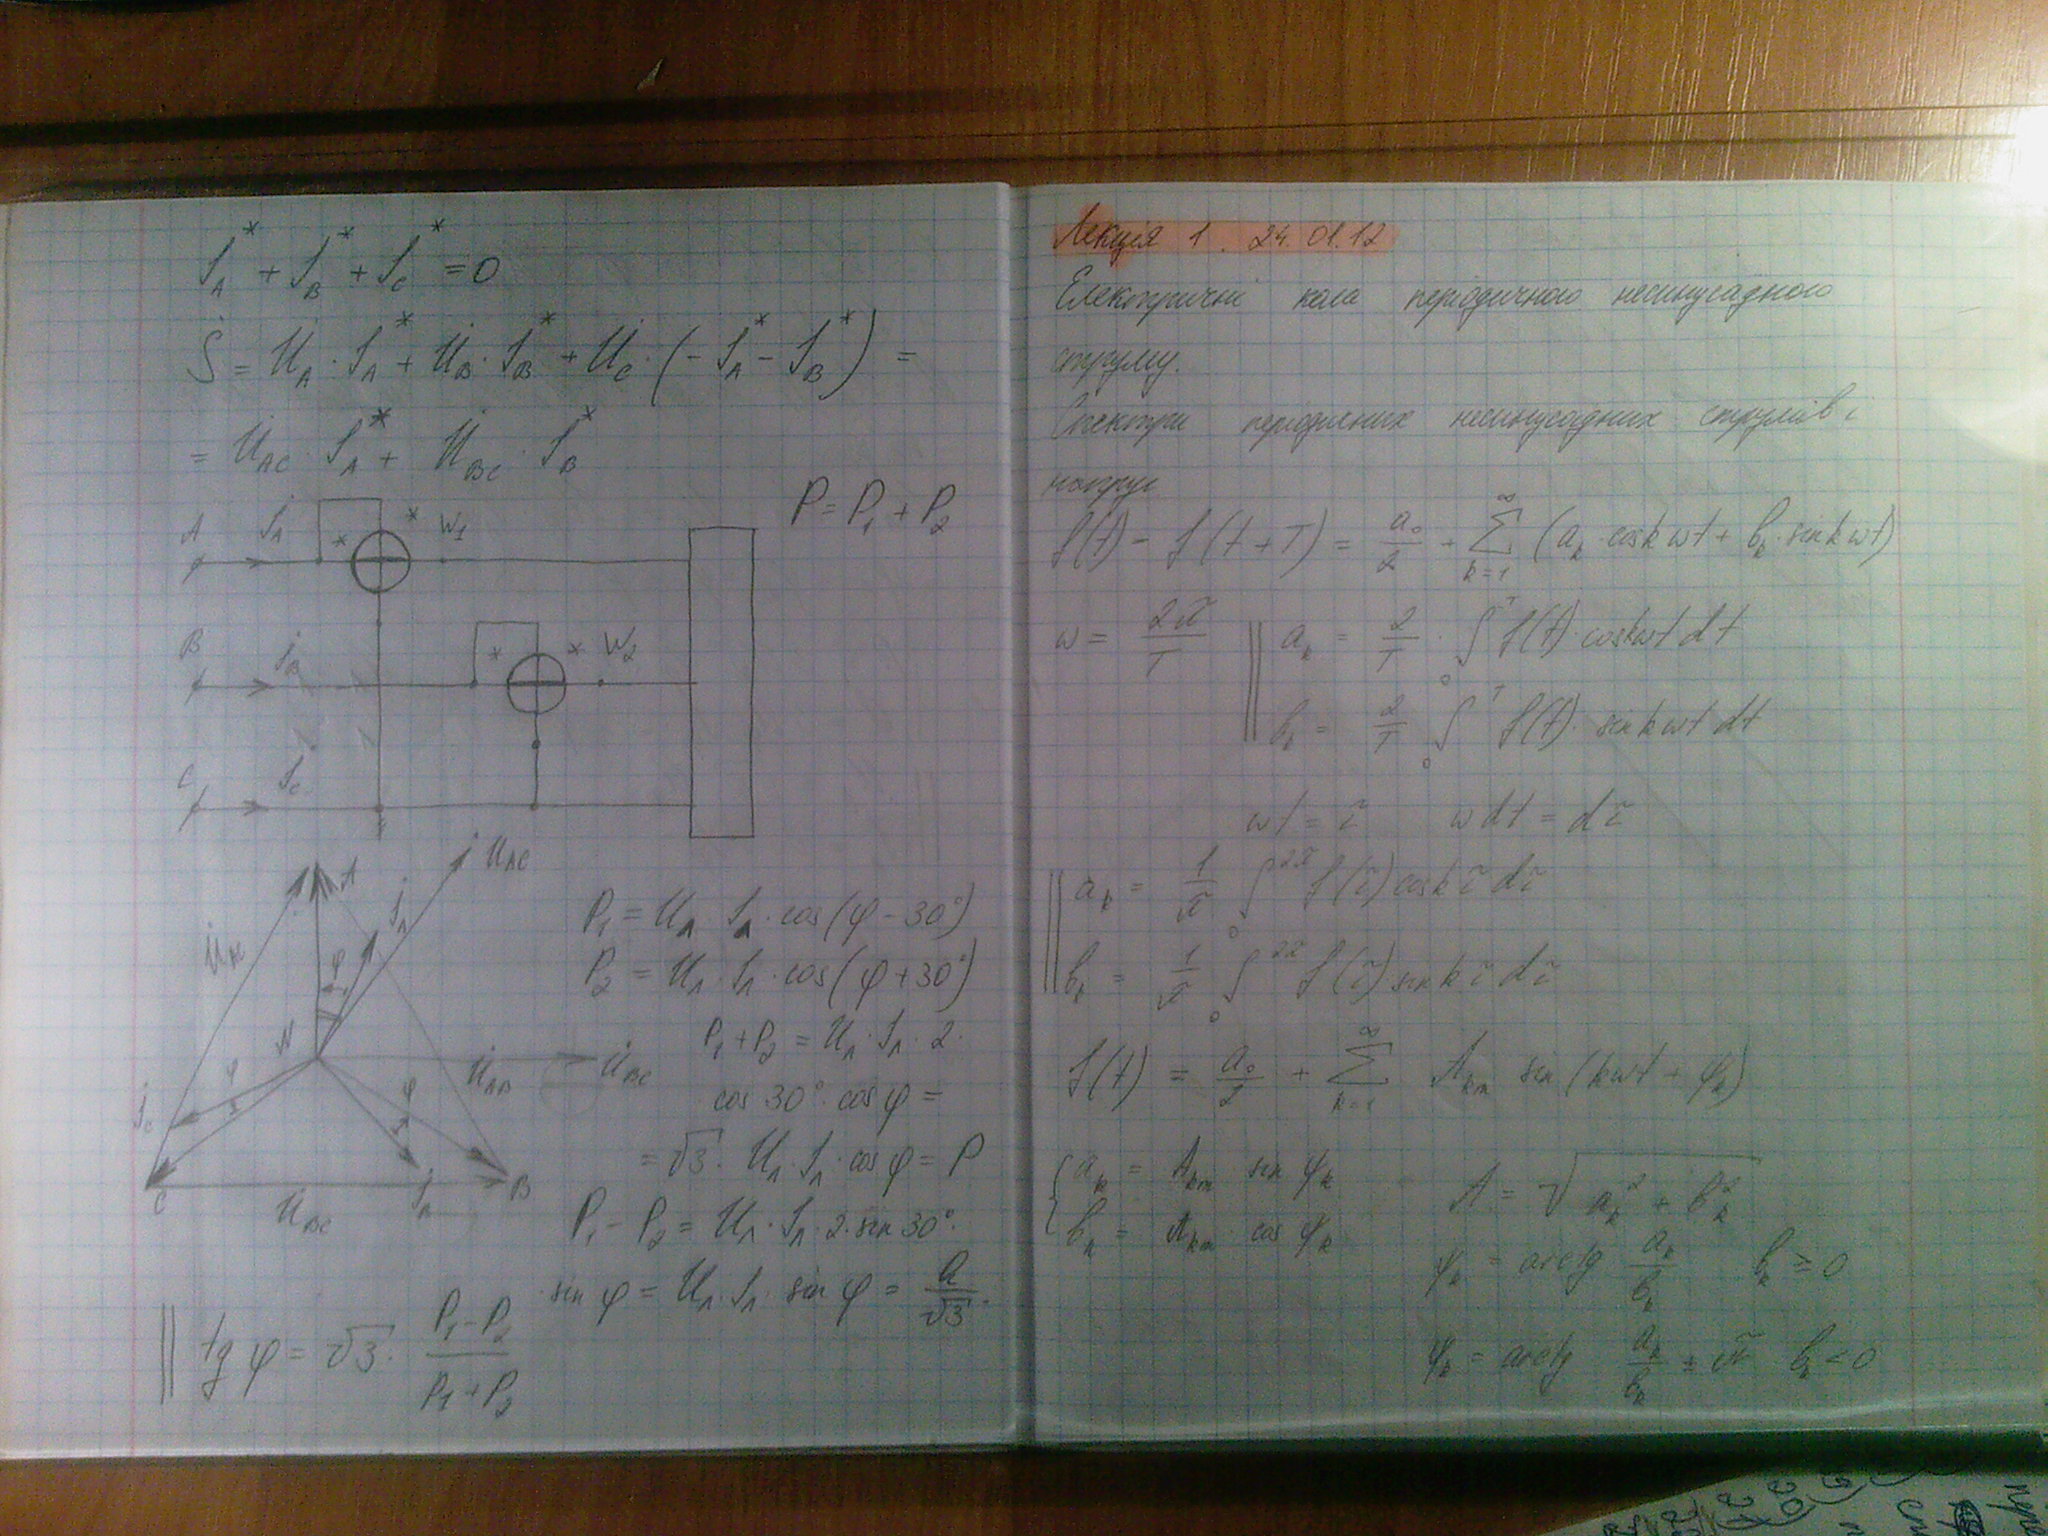 I_A* + I_B* + I_C* = 0
Ṡ = U̇_A · I_A* + U̇_B · I_B* + U̇_C · (− I_A* − I_B*) =
= U̇_AC · I_A* + U̇_BC · I_B*
P = P₁ + P₂
A İ_A * * W₁
B İ_B * * W₂
C İ_C
A U̇_AC
U̇_AC İ_A φ
N φ φ U̇_AB U̇_BC
İ_C
C U̇_BC İ_B B
P₁ = U_Л · I_Л · cos(φ − 30°)
P₂ = U_Л · I_Л · cos(φ + 30°)
P₁ + P₂ = U_Л · I_Л · 2 ·
cos 30° · cos φ =
= √3 · U_Л · I_Л · cos φ = P
P₁ − P₂ = U_Л · I_Л · 2 · sin 30° ·
· sin φ = U_Л · I_Л · sin φ = Q/√3 .
|| tg φ = √3 · (P₁ − P₂)/(P₁ + P₂)
Лекція 1. 24.01.12
Електричні кола періодичного несинусадного
струму.
Спектри періодичних несинусадних струмів і
напруг
f(t) − f(t + T) = a₀/2 + ∑_{k=1}^{∞} (a_k · cos kωt + b_k · sin kωt)
ω = 2π/T || a_k = 2/T · ∫₀ᵀ f(t) · cos kωt dt
b_k = 2/T · ∫₀ᵀ f(t) · sin kωt dt
ωt = τ ωdt = dτ
|| a_k = 1/π ∫₀^{2π} f(τ) cos kτ dτ
|| b_k = 1/π ∫₀^{2π} f(τ) · sin kτ dτ
f(t) = a₀/2 + ∑_{k=1}^{∞} A_km sin (kωt + φ_k)
{ a_k = A_km · sin φ_k A = √(a_k² + b_k²)
b_k = A_km · cos φ_k
φ_k = arctg a_k/b_k b_k ≥ 0
φ_k = arctg a_k/b_k ± π b_k < 0